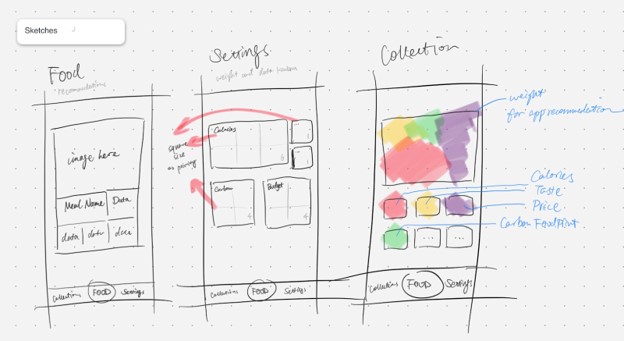 Sketches
Food
recommendations
image here
Meal Name
Data
data
data
data
Collections
FOOD
Settings
Settings
weight and data
Calories
8
Carbon
4
Budget
4
square
size
as priority
Collections
FOOD
Settings
Collection
weight
for app recommendation
Calories
Taste
Price
Carbon Footprint
...
...
Collections
FOOD
Settings